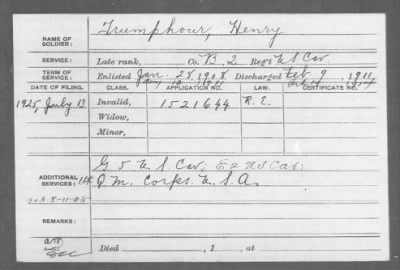 NAME OF SOLDIER: Trumphour, Henry
SERVICE: Late rank, Co. B, 2 Reg't U S Cav.
TERM OF SERVICE: Enlisted Jan. 28, 1908 Discharged Feb 9, 1911
DATE OF FILING. CLASS. APPLICATION NO. LAW. CERTIFICATE NO.
1925, July 13 Invalid, 1521644 R.E.
Widow,
Minor,
G 5 U.S Cav; E 2 U S Cav;
ADDITIONAL SERVICES: Q M. Corps. U.S.A.
REMARKS:
Died , 1 , at